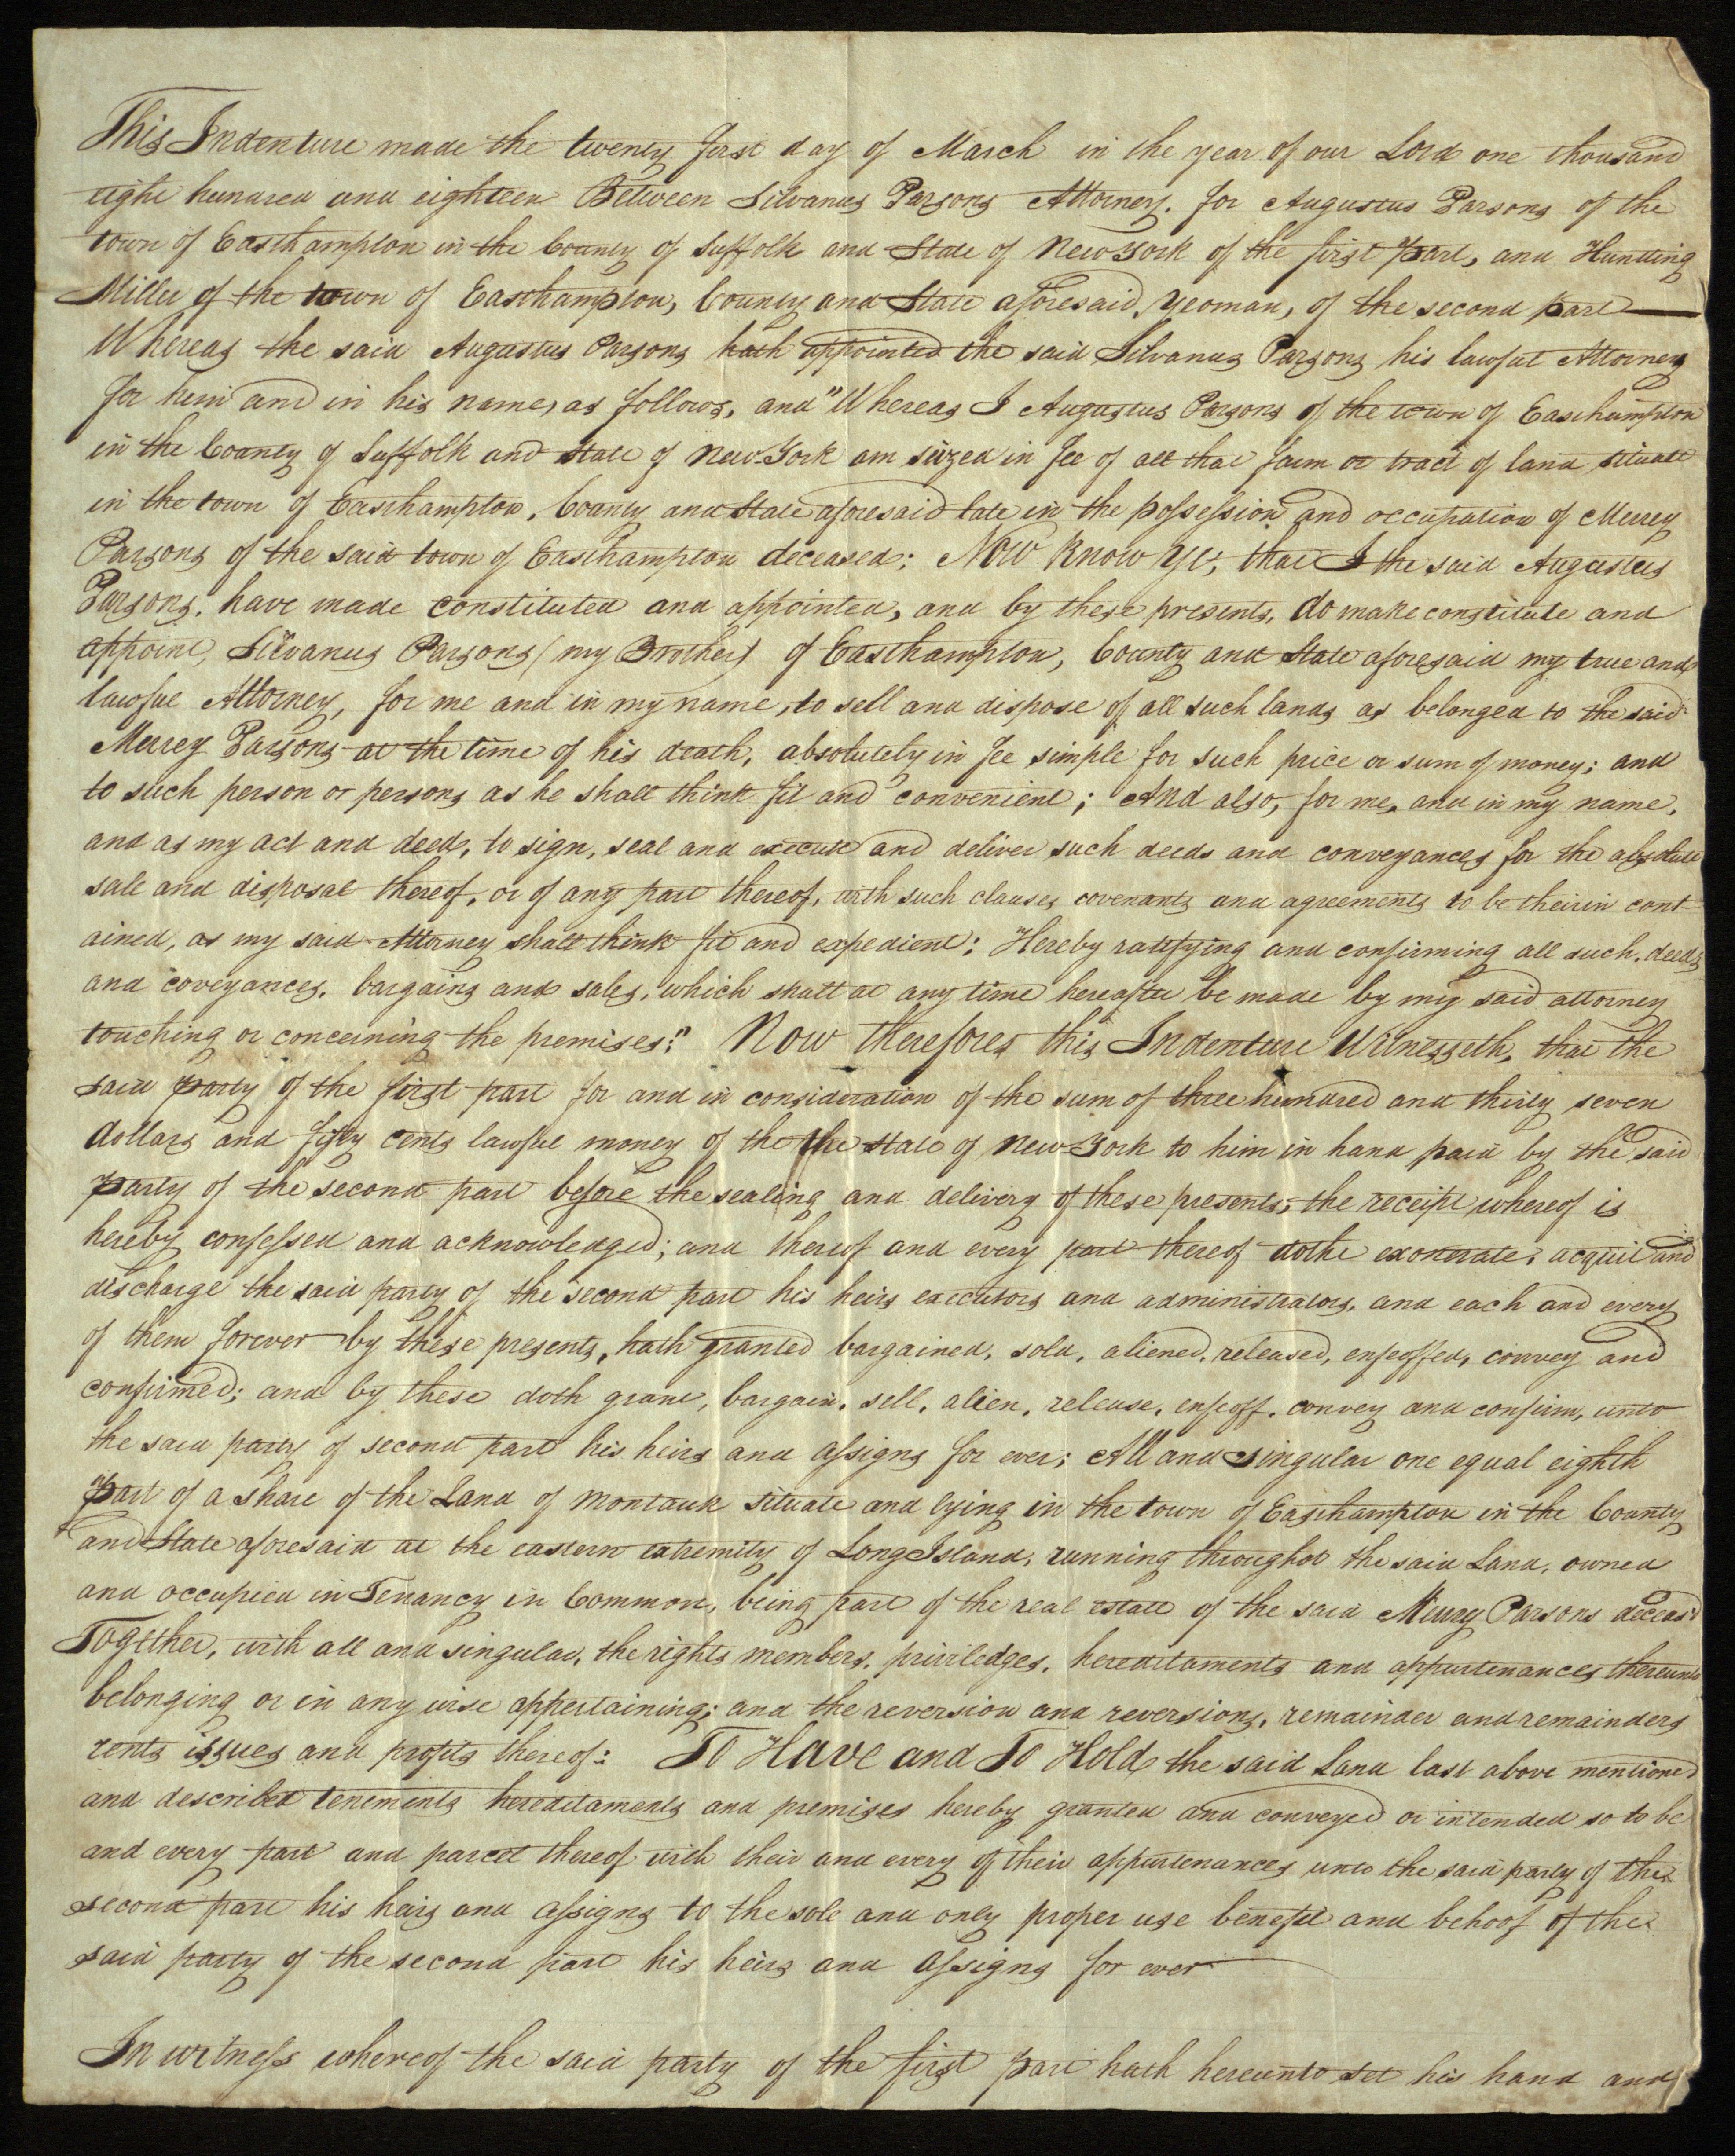 This Indenture made the twenty first day of March in the year of our Lord one thousand
eight hundred and eighteen Between Silvanus Parsons Attorney. for Augustus Parsons of the
town of Easthampton in the County of Suffolk and State of New York of the first part, and Huntting
Miller of the town of Easthampton, County and State aforesaid, yeoman, of the second part
Whereas the said Augustus Parsons hath appointed the said Silvanus Parsons his lawful Attorney
for him and in his name, as follows, and "Whereas I Augustus Parsons of the town of Easthampton
in the County of Suffolk and state of New-York am siezed in fee of all that farm or tract of land situate
in the town of Easthampton, County and State aforesaid late in the possession and occupation of Merrey
Parsons of the said town of Easthampton deceased; Now Know Ye, that I the said Augustus
Parsons, have made constituted and appointed, and by these presents, do make constitute and
appoint, Silvanus Parsons (my Brother) of Easthampton, County and State aforesaid my true and
lawful Attorney, for me and in my name, to sell and dispose of all such lands as belonged to the said
Merrey Parsons at the time of his death, absolutely in fee simple for such price or sum of money; and
to such person or persons as he shall think fit and convenient; And also, for me, and in my name,
and as my act and deed, to sign, seal and execute and deliver such deeds and conveyances for the absolute
sale and disposal thereof, or of any part thereof, with such clauses covenants and agreements to be theirin cont-
ained, as my said Attorney shall think fit and expedient: Hereby ratifying and confirming all such, deeds
and coveyances, bargains and sales, which shall at any time hereafter be made by my said attorney
touching or concerning the premises:" Now therefore, this Indenture Witnesseth, that the
said party of the first part for and in consideration of the sum of three hundred and thirty seven
dollars and fifty cents lawful money of the the State of New-York to him in hand paid by the said
party of the second part before the sealing and delivery of these presents, the receipt whereof is
hereby confessed and acknowledged; and thereof and every part thereof dothe exonerate, acquit and
discharge the said party of the second part his heirs executors and administrators, and each and every
of them forever by these presents, hath granted bargained, sold, aliened, released, enfeoffed, convey and
confirmed; and by these doth grant, bargain, sell, alien, release, enfeoff, convey and confirm, unto
the said party of second part his heirs and assigns for ever; All and singular one equal eighth
part of a share of the Land of Montauk situate and lying in the town of Easthampton in the County
and State aforesaid at the eastern extremity of Long Island, running throughot the said Land, owned
and occupied in Tenancy in Common, being part of the real estate of the said Merrey Parsons deceasd
Together, with all and singular, the rights members, priviledges, hereditaments and appurtenances thereunto
belonging or in any wise appertaining; and the reversion and reversions, remainder and remainders
rents issues and profits thereof: To Have and To Hold, the said Land last above mentioned
and described tenements hereditaments and premises hereby granted and conveyed or intended so to be
and every part and parcel thereof with their and every of their appurtenances unto the said party of the
second part his heirs and assigns to the sole and only proper use benefit and behoof of the
said party of the second part his heirs and assigns for ever
In witness whereof the said party of the first part hath hereunto set his hand and